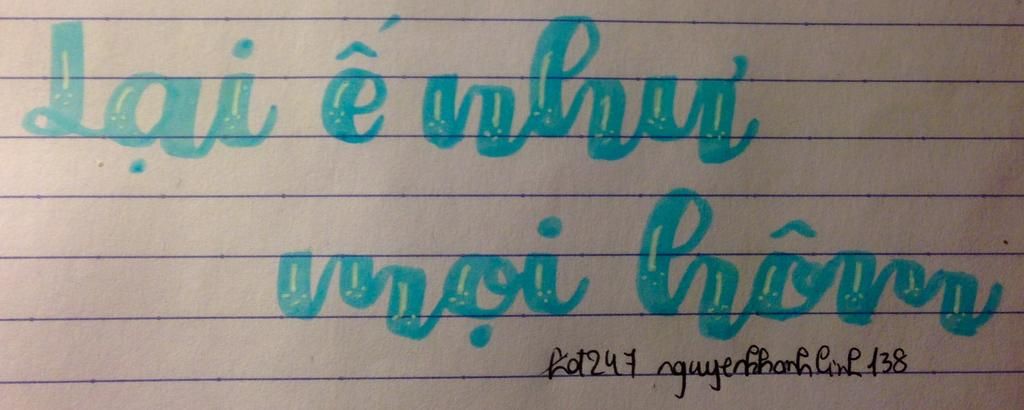 Lại ế như
mọi hôm
Hot247 nguyenkhanhlinh138